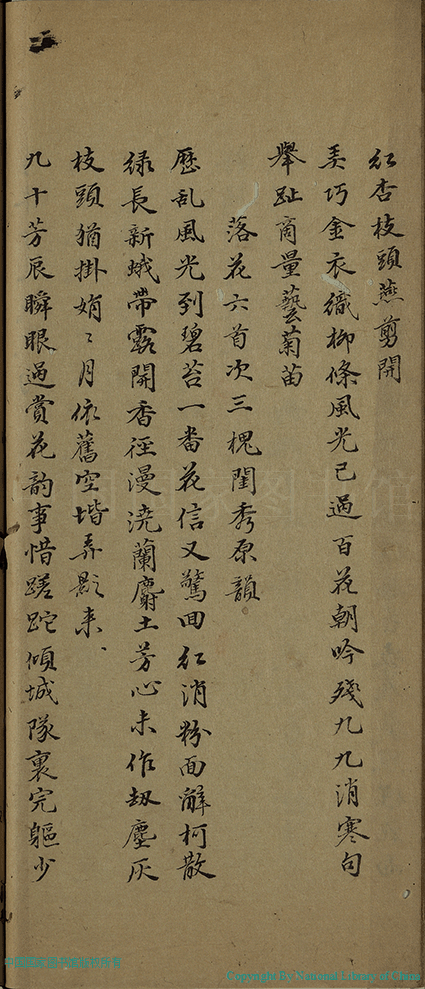 紅杏枝頭燕剪開
弄巧金衣織柳條風光已過百花朝吟殘九九消寒句
舉趾商量藝菊苗
落花六首次三槐閨秀原韻
歷亂風光列碧苔一番花信又驚回紅消粉面辭柯散
綠長新蛾帶露開香徑漫澆蘭麝土芳心未作劫塵灰
枝頭猶掛娟〻月依舊空堦弄影来、
九十芳辰瞬眼過賞花韵事惜蹉跎傾城隊裏完軀少
Copyright By National Library of China